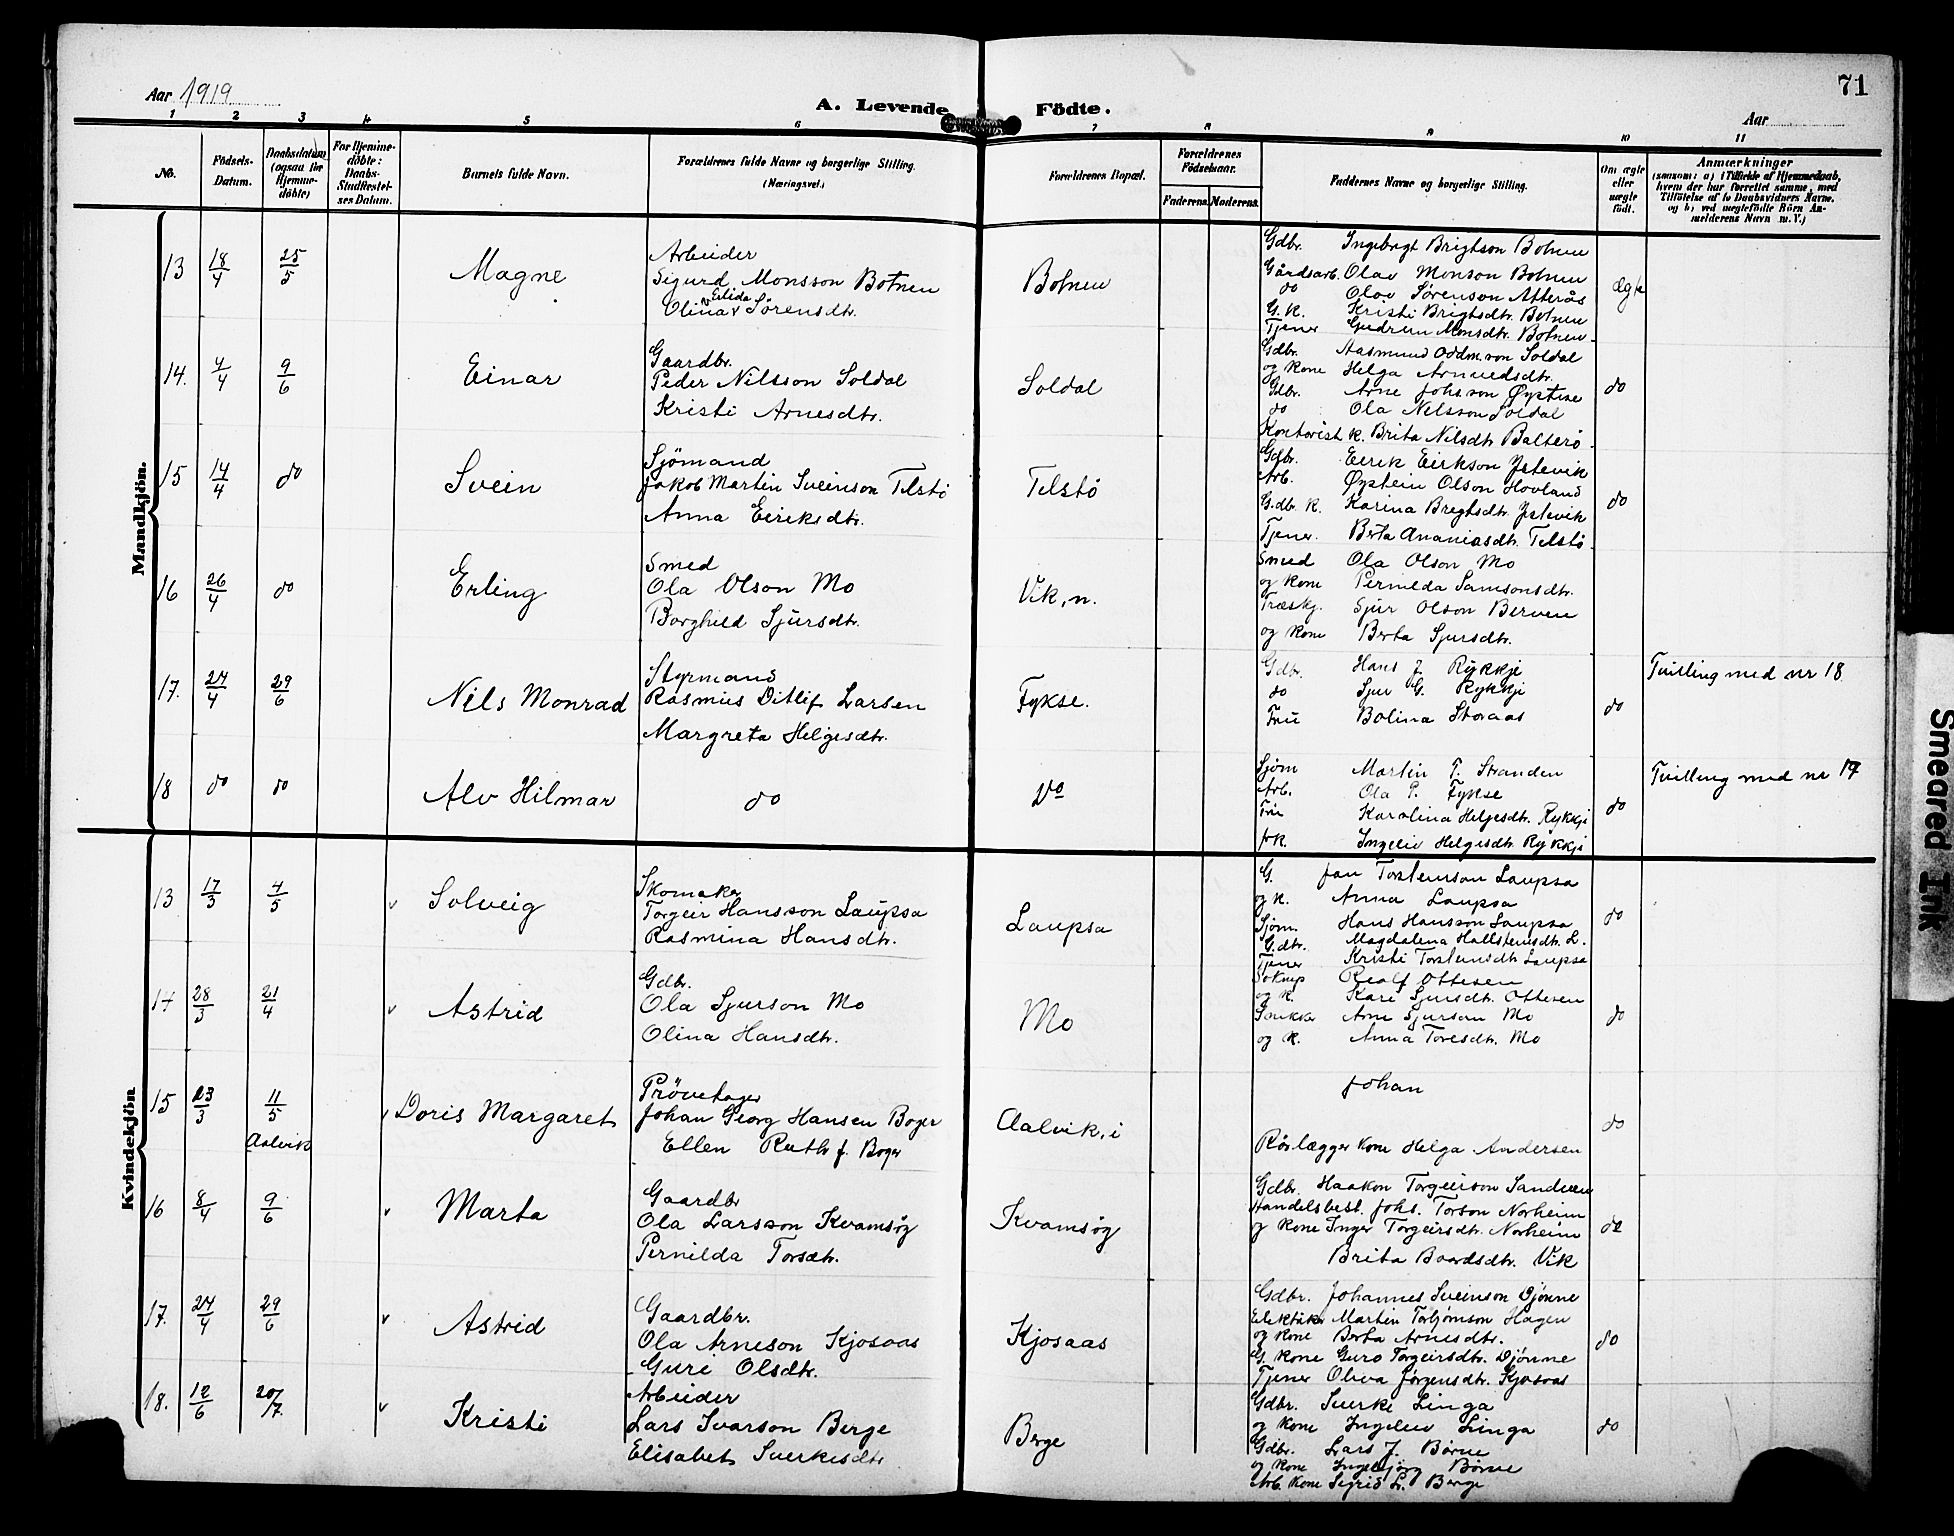 71
Aar 1919
A. Levende Födte.
Aar
1 2 3 4 5 6 7 8 9 10 11
No.
Födsels-Datum.
Daabsdatum (ogsaa for Hjemmedöbte)
For Hjemmedöbte: Daabs-Stadfæstelses Datum.
Barnets fulde Navn.
Forældrenes fulde Navne og borgerlige Stilling.
(Næringsvei.)
Forældrenes Bopæl.
Forældrenes Födselsaar.
Faderens. Moderens.
Faddernes Navne og borgerlige Stilling.
Om ægte eller uægte födt.
Anmærkninger
(saasom: a) i Tilfælde af Hjemmedaab, hvem der har forrettet samme, med Tilföielse af to Daabsvidners Navne, og b) ved uægtefödte Börn Anmelderens Navn m. V.)
Mandkjön.
13 18/4 25/5 Magne
Arbeider
Sigurd Monsson Botnen
Olina Elida Sørensdtr.
Botnen
Gdbr. Ingebrgt Brigtson Botnen
Gårdsarb. Olav Monson Botnen
do Olav Sørenson Atterås
G. K. Kristi Brigtsdtr. Botnen
Tjener Gudrun Monsdtr. Botnen
ægte
14. 4/4 9/6 Einar
Gaardbr.
Peder Nilsson Soldal
Kristi Arnesdtr.
Soldal
Gdbr. Aasmund Oddm.son Soldal
og Kone Helga Arnvedsdtr.
Gdbr. Arne Johs.son Øystese
do Ola Nilsson Soldal
Kontorist k. Brita Nilsdtr Balterö
do
15 14/4 do Svein
Sjömand
Jakob Martin Sveinson Telstö
Anna Eiriksdtr.
Telstö
Gdbr. Eirik Eirikson Ystevik
Arb. Øystein Olson Hovland
G.dbr. K. Karina Bregtsdtr. Ystevik
Tjener. Berta Ananiasdtr. Telstö
do
16 26/4 do Erling
Smed
Ola Olson Mo
Borghild Sjursdtr.
Vik, n.
Smed Ola Olson Mo
og Kone Pernilda Samsonsdtr.
Træskj. Sjur Olson Berven
og Kone Berta Sjursdtr.
17. 24/4 29/6 Nils Monrad
Styrmand
Rasmus Ditlif Larsen
Margreta Helgesdtr.
Fykse.
Gdbr. Hans J. Rykkje
do Sjur G. Rykkje
Fru Bolina Storaas
do
Tvilling med nr 18
18 do do Alv Hilmar
do
Do
Sjøm Martin T. Stranden
Arb. Ola P. Fykse
Fru Karolina Helgesdtr. Rykkje
frk. Ingeliv Helgesdtr. Rykkje
do
Tvilling med nr 17
Kvindekjön
13 17/3 4/5 v Solveig
Skomaker
Torgeir Hansson Laupsa
Rasmina Hansdtr.
Laupsa
G. Jan Torsteinson Laupsa
og k. Anna Laupsa
Sjøm. Hans Hansson Laupsa
G.dtr. Magdalena Hallsteinsdtr. L.
Tjener Kristi Torsteinsdtr Laupsa
do
14 28/3 21/4 v Astrid
Gdbr.
Ola Sjurson Mo
Olina Hansdtr.
Mo
Rolf Ottesen
og k. Kari Sjursdtr. Ottesen
Snikker Arne Sjurson Mo
og k. Anna Toresdtr. Mo
do
15 23/3 11/5 Aalvik v Doris Margaret
Prövetager
Johan Georg Hansen Boger
Ellen Ruth f. Boger
Aalvik, i
Johan
Rörlægger Kone Helga Andersen
do
16 8/4 9/6 v Marta
Gaardbr
Ola Larsson Kvamsøy
Pernilda Torsdtr.
Kvamsøy
Gdbr. Haakon Torgeirson Sandven
Handelsbest. Johs. Torson Norheim
og Kone Inger Torgeirsdtr. Norheim
Brita Baardsdtr. Vik
do
17. 24/4 29/6 v Astrid
Gaardbr.
Ola Arneson Kjosaas
Guri Olsdtr.
Kjosaas
Gdbr. Johannes Sveinson Djönne
Elektriker Martin Torbjørnson Hagen
og Kone Berta Arnesdtr.
G. Kone Guro Torgeirsdtr. Djönne
Tjener Oliva Jörgensdtr. Kjosaas
do
18. 12/6 20/7. v Kristi
Arbeider
Lars Ivarson Berge
Elisabet Sverkesdtr
Berge
Gdbr. Sverke Linga
og Kone Ingeliv Linga
Gdbr. Lars J. Børve
og Kone Ingebjørg Børve
Arb. Kone Sigrid L. Berge
do
Smeared Ink